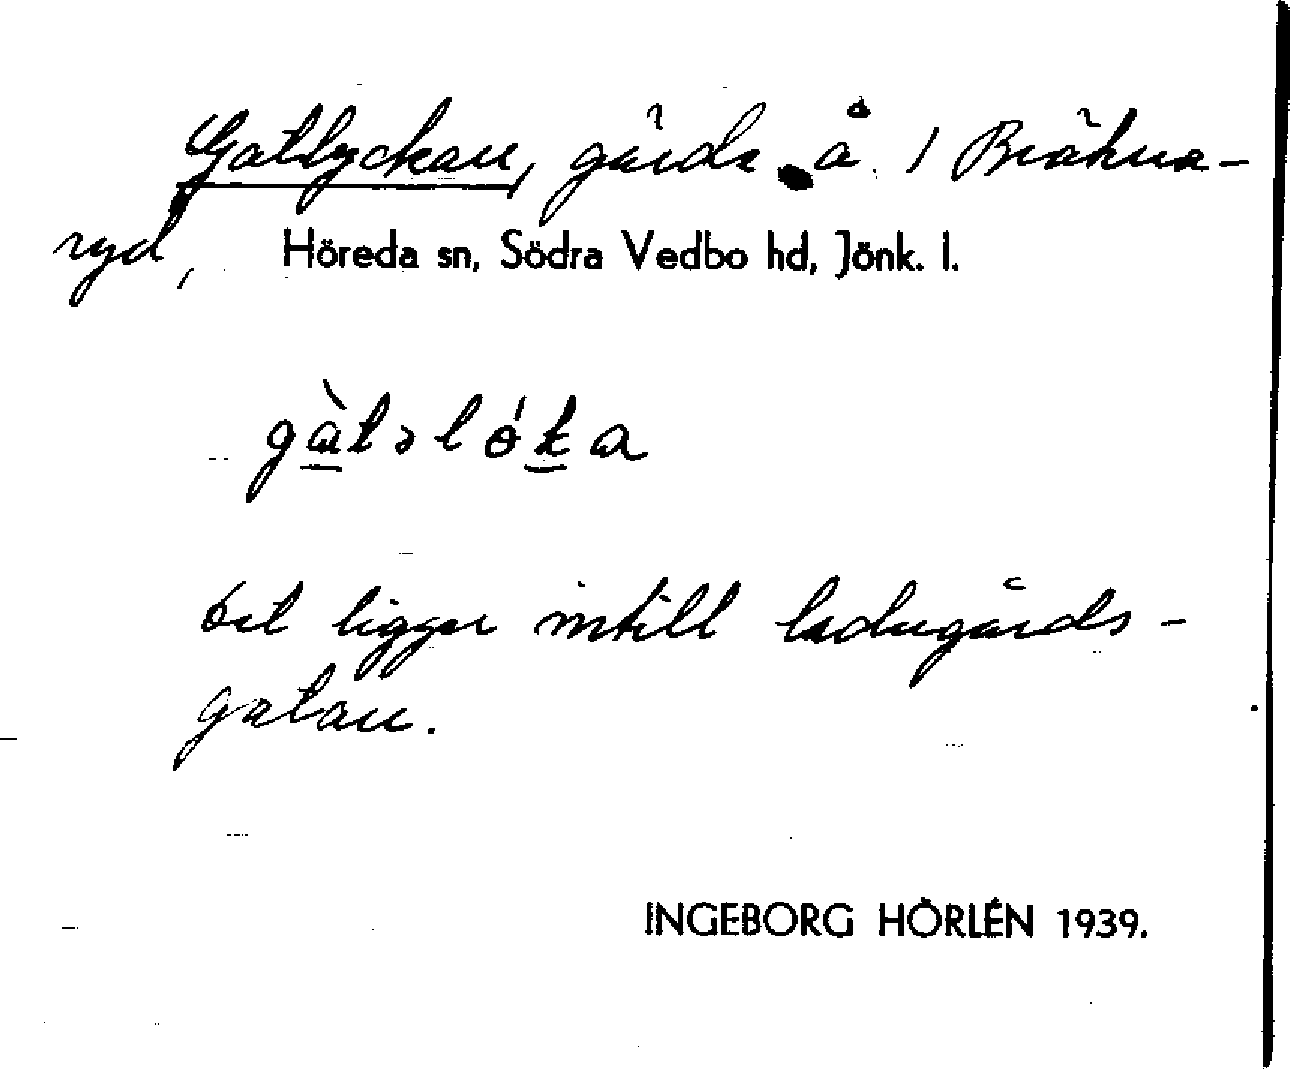 Gatlyckan, gärde å 1 Bråkna-
ryd, Höreda sn, Södra Vedbo hd, Jönk. l.
det ligger intill ladugårds-
gatan.
INGEBORG HÖRLÉN 1939.